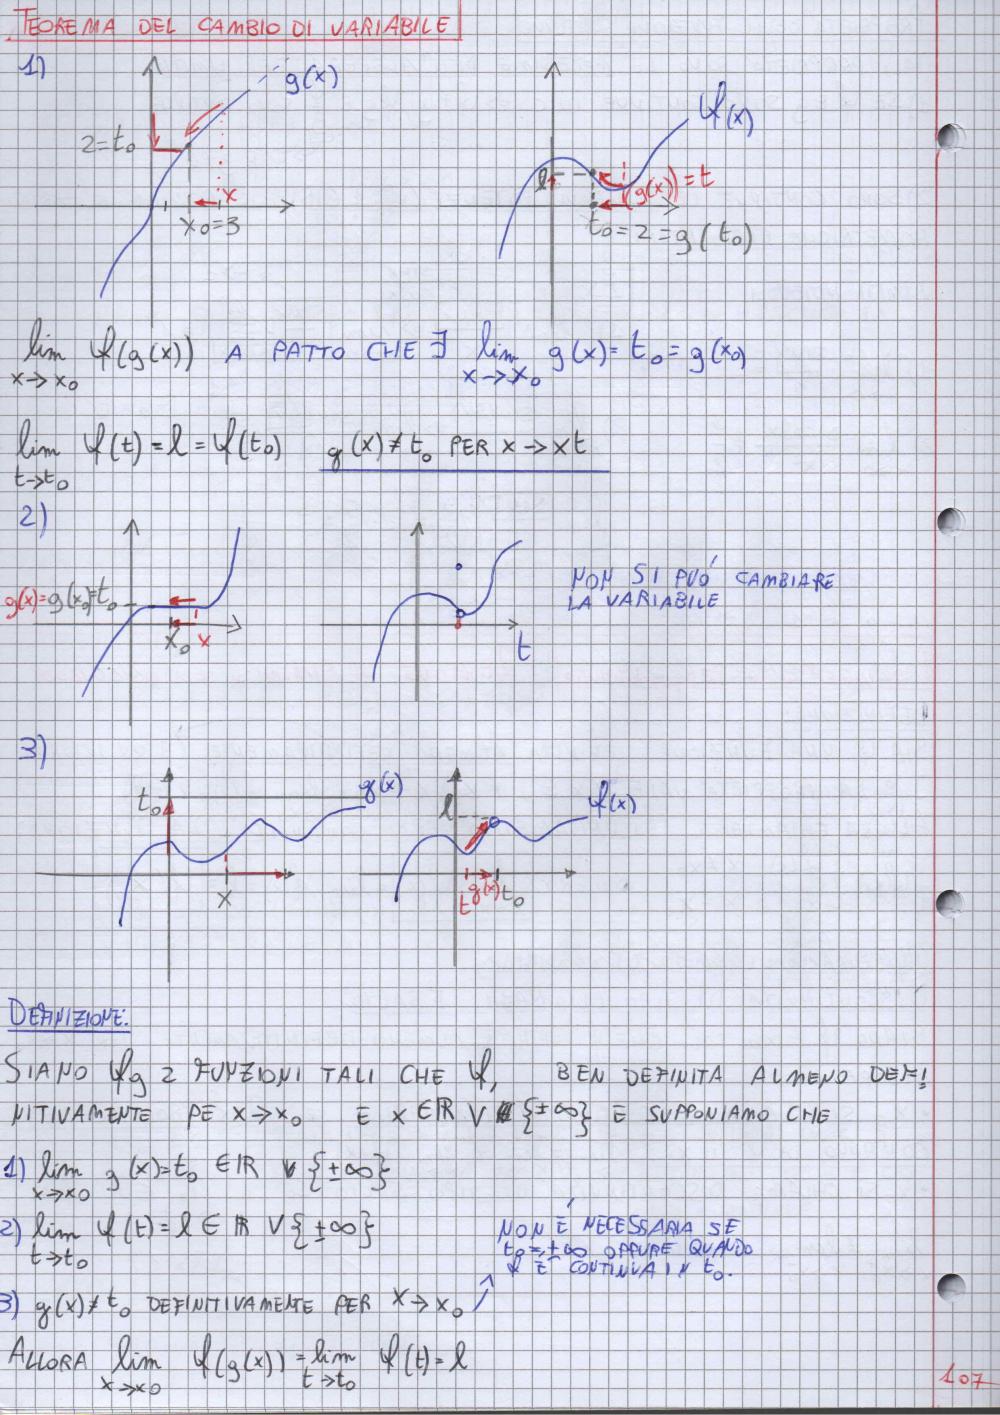 TEOREMA DEL CAMBIO DI VARIABILE
1)
g(x)
2=t₀
x
x₀=3
φ(x)
l
(g(x))=t
t₀=2=g(t₀)
lim φ(g(x)) A PATTO CHE ∃ lim g(x)=t₀=g(x₀)
x→x₀ x→x₀
lim φ(t)=l=φ(t₀) g(x)≠t₀ PER x→xt
t→t₀
2)
g(x)=g(x₀)=t₀
x₀ x
t
NON SI PUÓ CAMBIARE
LA VARIABILE
3)
t₀
g(x)
x
l
φ(x)
t g(x) t₀
DEFINIZIONE:
SIANO φ g 2 FUNZIONI TALI CHE φ, BEN DEFINITA ALMENO DEFI
NITIVAMENTE PE x→x₀ E x∈ℝ ∨ {±∞} E SUPPONIAMO CHE
1) lim g(x)=t₀ ∈ℝ ∨ {±∞}
x→x₀
2) lim φ(t)=l∈ℝ ∨{±∞}
t→t₀
NON É NECESSARIA SE
t₀=±∞ OPPURE QUANDO
φ È CONTINUA IN t₀.
3) g(x)≠t₀ DEFINITIVAMENTE PER x→x₀
ALLORA lim φ(g(x))=lim φ(t)=l
x→x₀ t→t₀
107